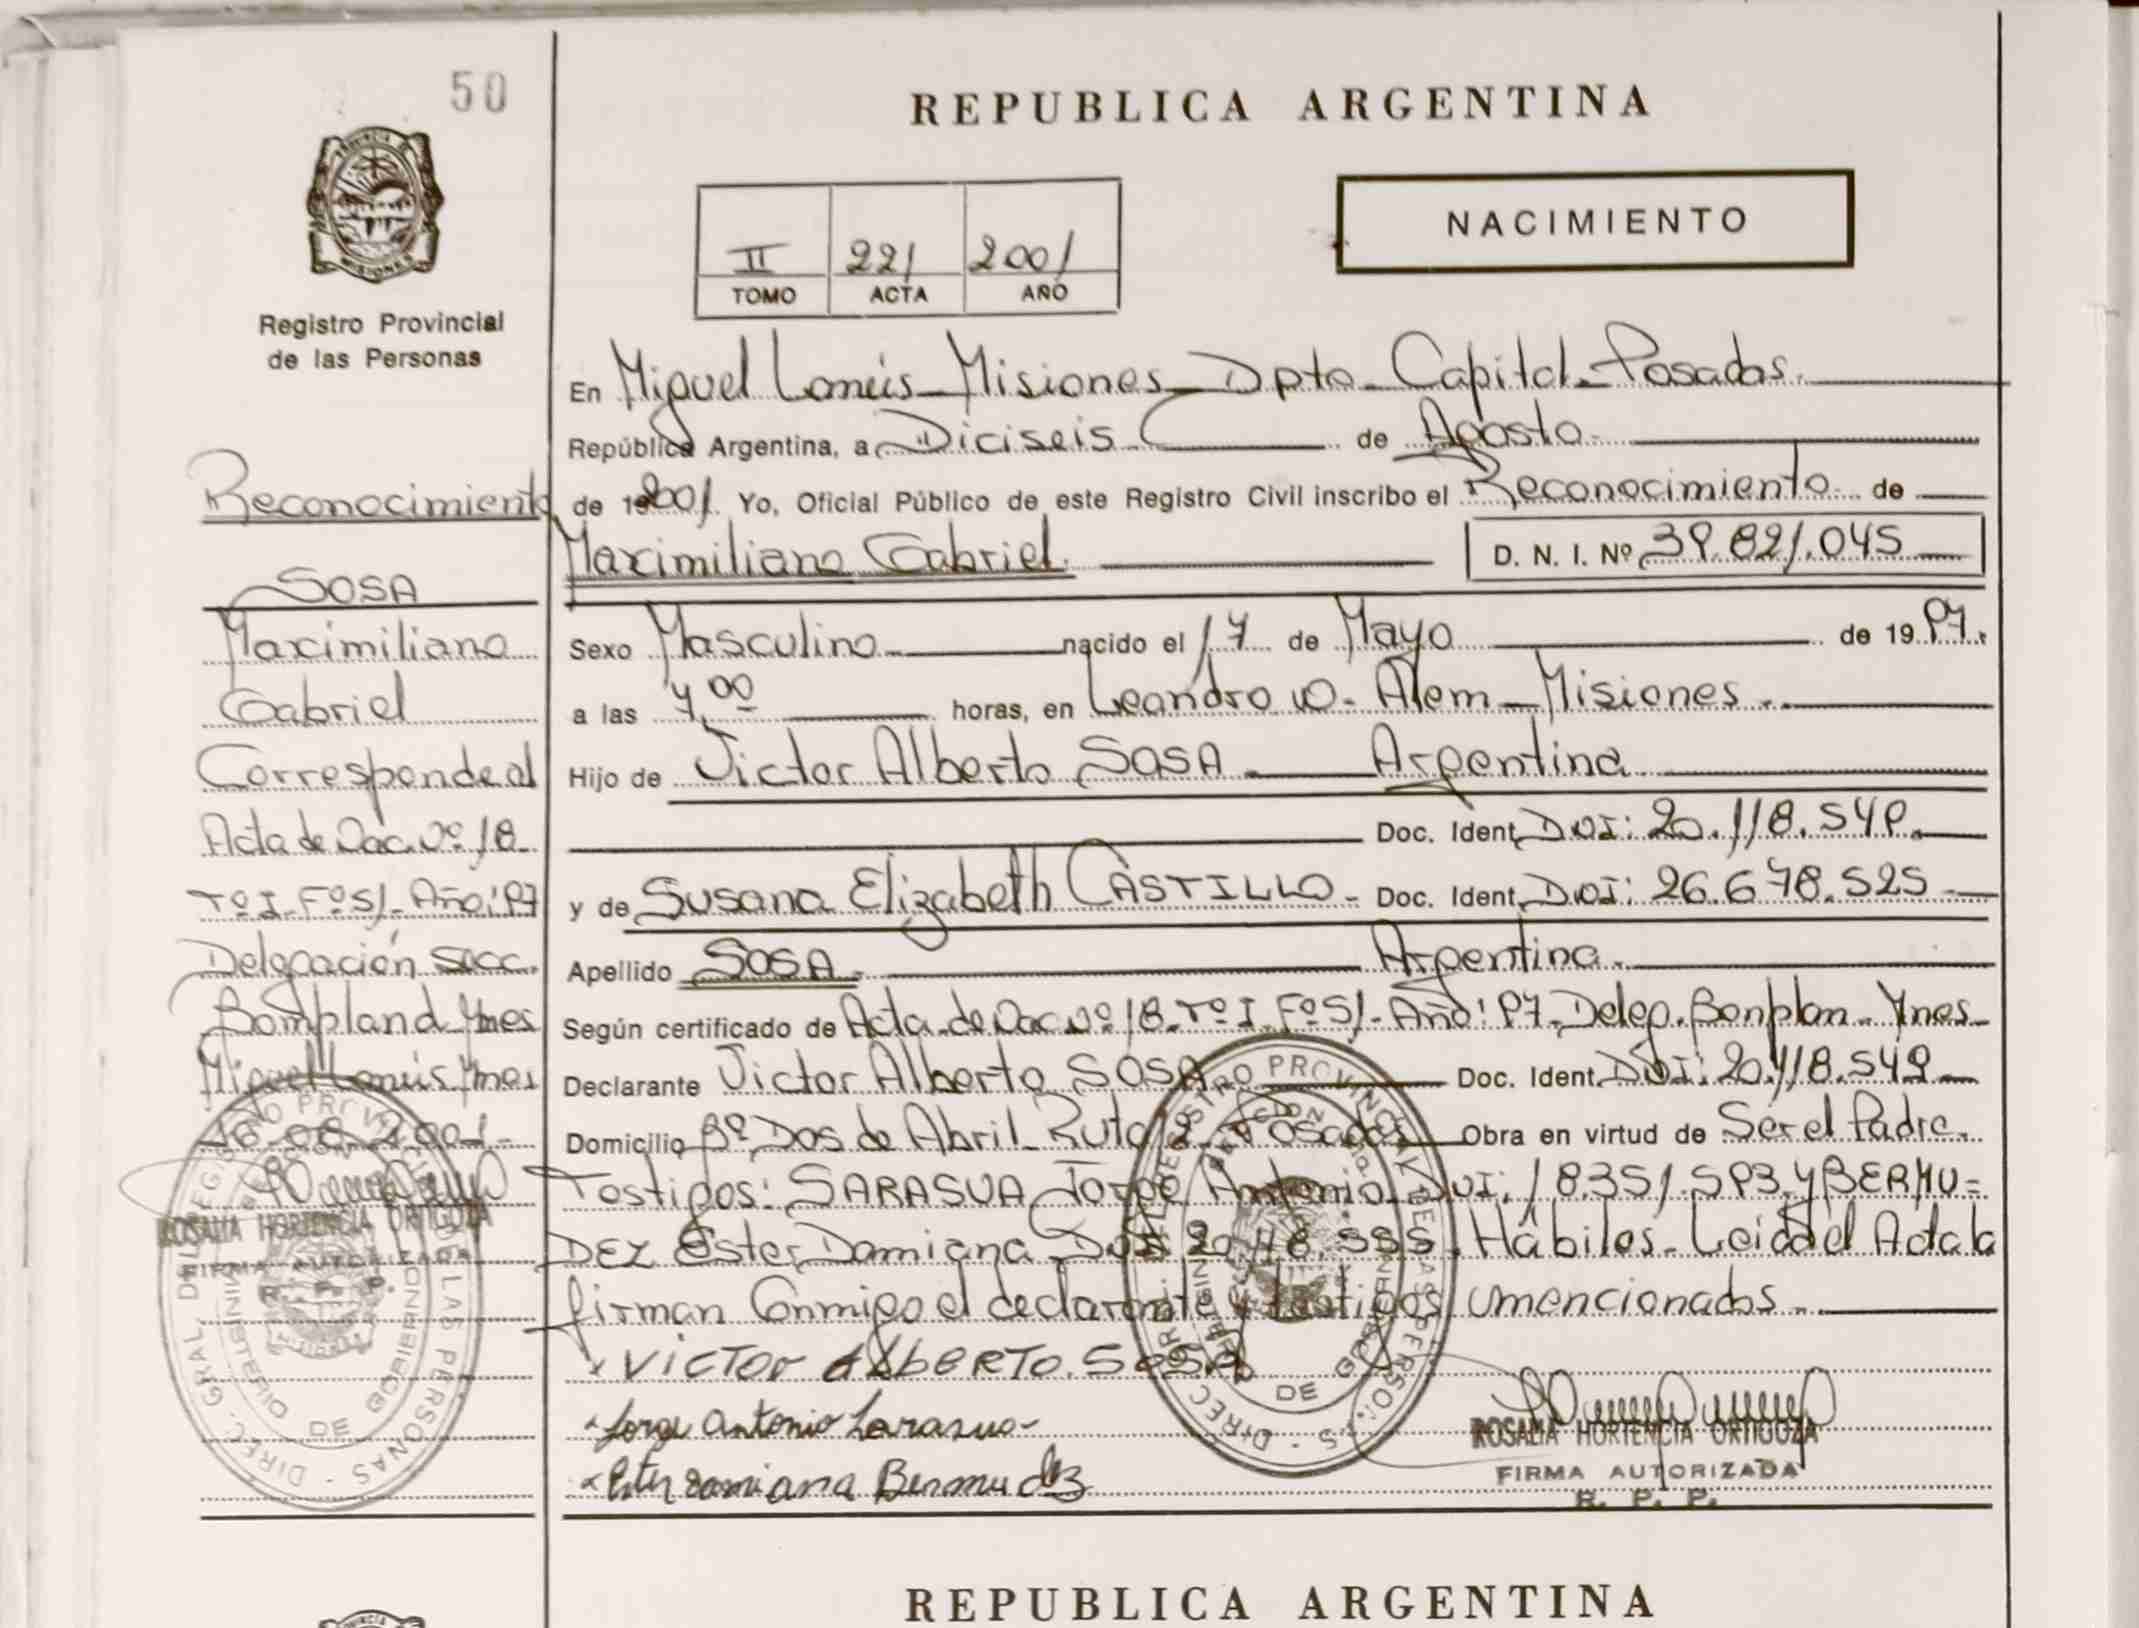 50
PROVINCIA DE
MISIONES
Registro Provincial
de las Personas
Reconocimiento
SOSA
Maximiliano
Gabriel
Corresponde al
Acta de Nac. Nº 18
Tº I. Fº 51. Año: 97
Delegación Secc.
Bompland Mnes
Miguel Lanús Mnes
16-08-2001-
ROSALIA HORTENCIA ORTIGOZA
FIRMA AUTORIZADA
R. P. P.
DIREC. GRAL. DEL REGISTRO PROVINCIAL DE LAS PERSONAS
MINISTERIO DE GOBIERNO
REPUBLICA ARGENTINA
NACIMIENTO
II 221 2001
TOMO ACTA AÑO
En Miguel Lanús - Misiones - Dpto - Capital - Posadas.
República Argentina, a Diciseis de Agosto
de 192001. Yo, Oficial Público de este Registro Civil inscribo el Reconocimiento de
Maximiliano Gabriel. D. N. I. Nº 39.821.045
Sexo Masculino nacido el 17 de Mayo de 19 97.
a las 7,00 horas, en Leandro N. Alem - Misiones.
Hijo de Victor Alberto SOSA - Argentina
Doc. Ident. DNI: 20.118.549.
y de Susana Elizabeth CASTILLO - Doc. Ident. DNI: 26.678.525
Apellido SOSA. Argentina.
Según certificado de Acta de Nac. Nº 18. Tº I. Fº 51. Año: 97. Deleg. Bonplan - Mnes-
Declarante Victor Alberto SOSA Doc. Ident. DNI: 20.118.549
Domicilio Bº Dos de Abril - Ruta 12 - Posadas Obra en virtud de Ser el Padre.
Testigos: SARASUA Jorge Antonio DNI: 18351.593. y BERMU=
DEZ Ester Damiana DNI Hábiles - Leida el Acta la
firman Conmigo el declarante y testigos mencionados.
VICTOr ALbERTO. SOSA
Jorge Antonio Sarasua-
Ester Damiana Bermudez
DIREC. GRAL. DEL REGISTRO PROVINCIAL DE LAS PERSONAS
MINISTERIO DE GOBIERNO
ROSALIA HORTENCIA ORTIGOZA
FIRMA AUTORIZADA
R. P. P.
REPUBLICA ARGENTINA